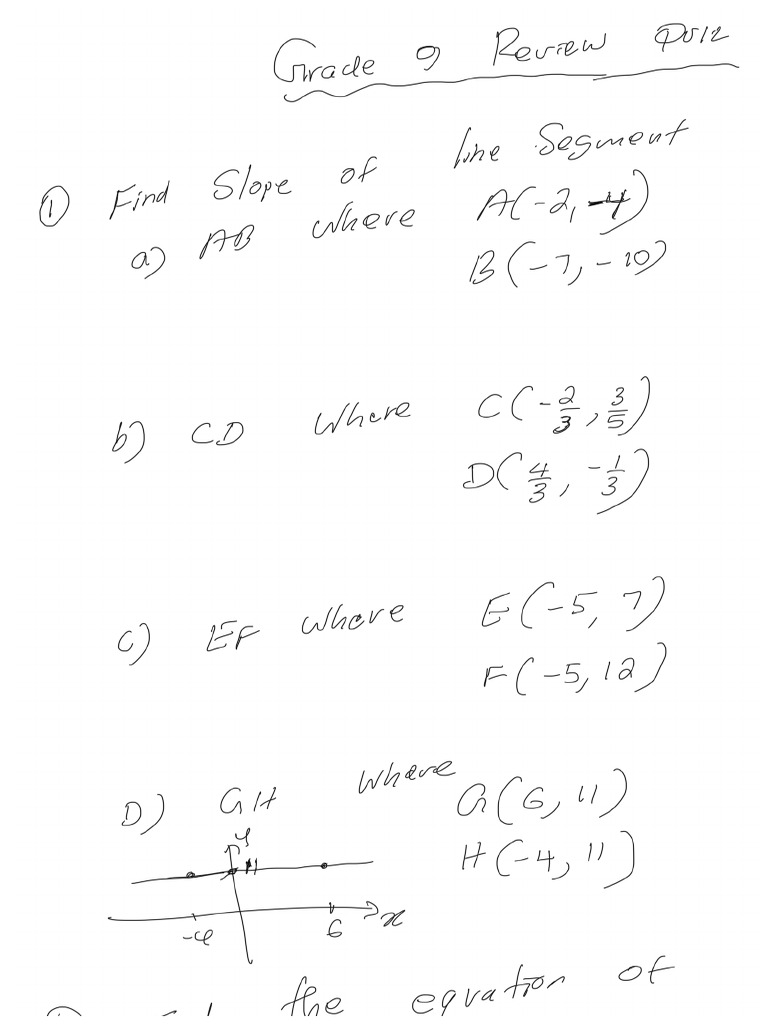 Grade 9 Review Quiz
① Find Slope of line Segment
a) AB where A(-2, -4)
B(-7, -10)
b) CD where C(-2/3, 3/5)
D(4/3, -1/3)
c) EF where E(-5, 7)
F(-5, 12)
D) GH where G(6, 11)
H(-4, 11)
y
11
-4 6 x
the equation of